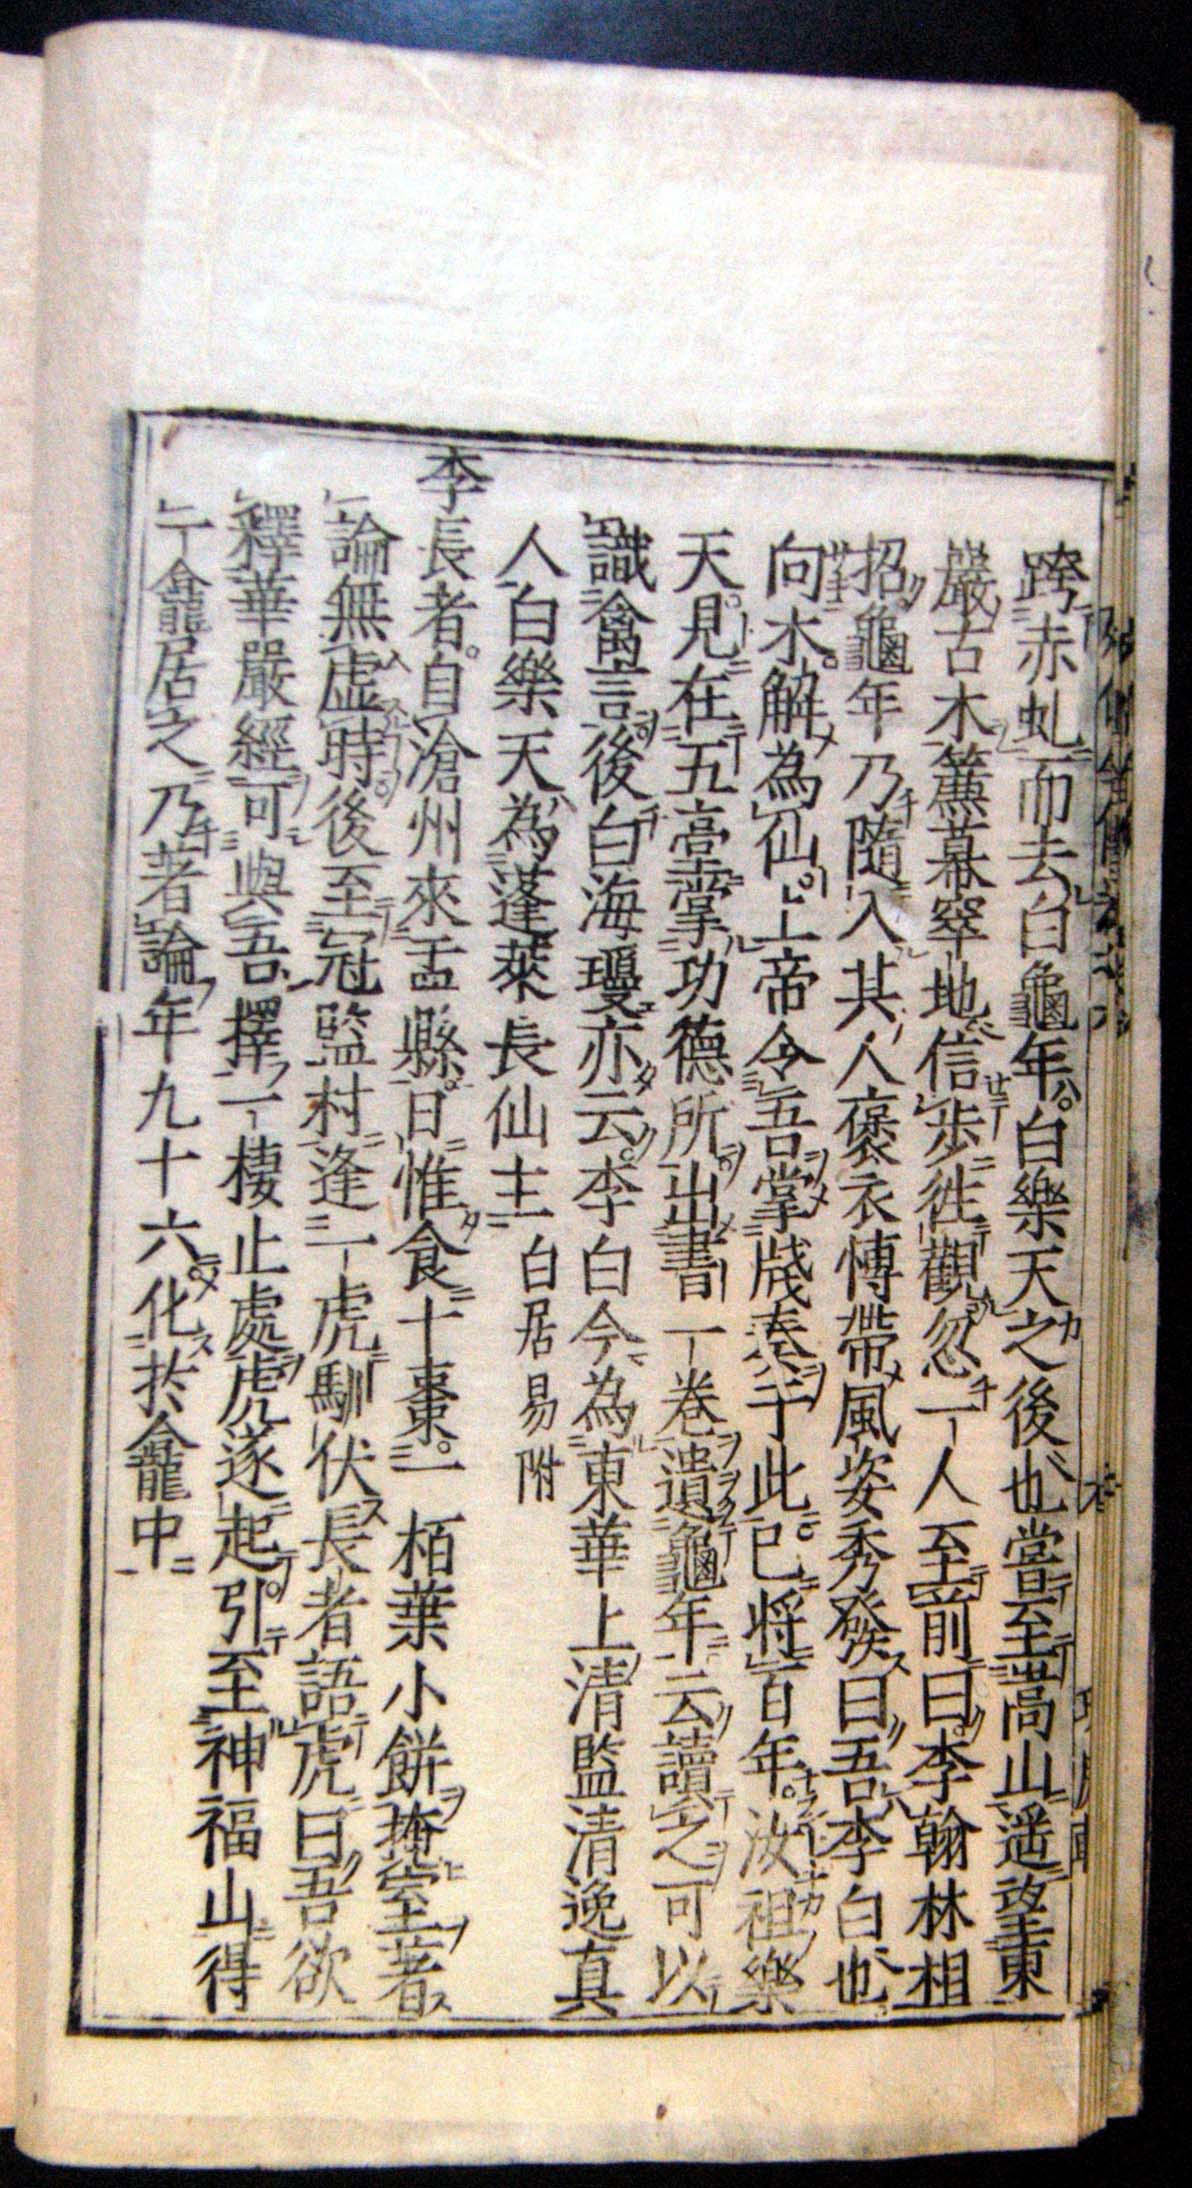 跨赤虬而去白龜年白樂天之後也嘗至嵩山遥望東
巖古木簾幕窣地信歩往觀忽一人至前曰李翰林相
招龜年乃隨入其人褒衣博帶風姿秀發曰吾李白也
向水解為仙上帝令吾掌牋奏于此已将百年汝祖樂
天見在五臺掌功德所出書一卷遺龜年云讀之可以
識禽言後白海瓊亦云李白今為東華上清監清逸真
人白樂天為蓬萊長仙主 白居易附
李長者自滄州來盂縣日惟食十棗一柏葉小餅掩室著
論無虚時後至冠監村逢一虎馴伏長者語虎曰吾欲
釋華嚴經可與吾擇一棲止處虎遂起引至神福山得
一龕居之乃著論年九十六化於龕中